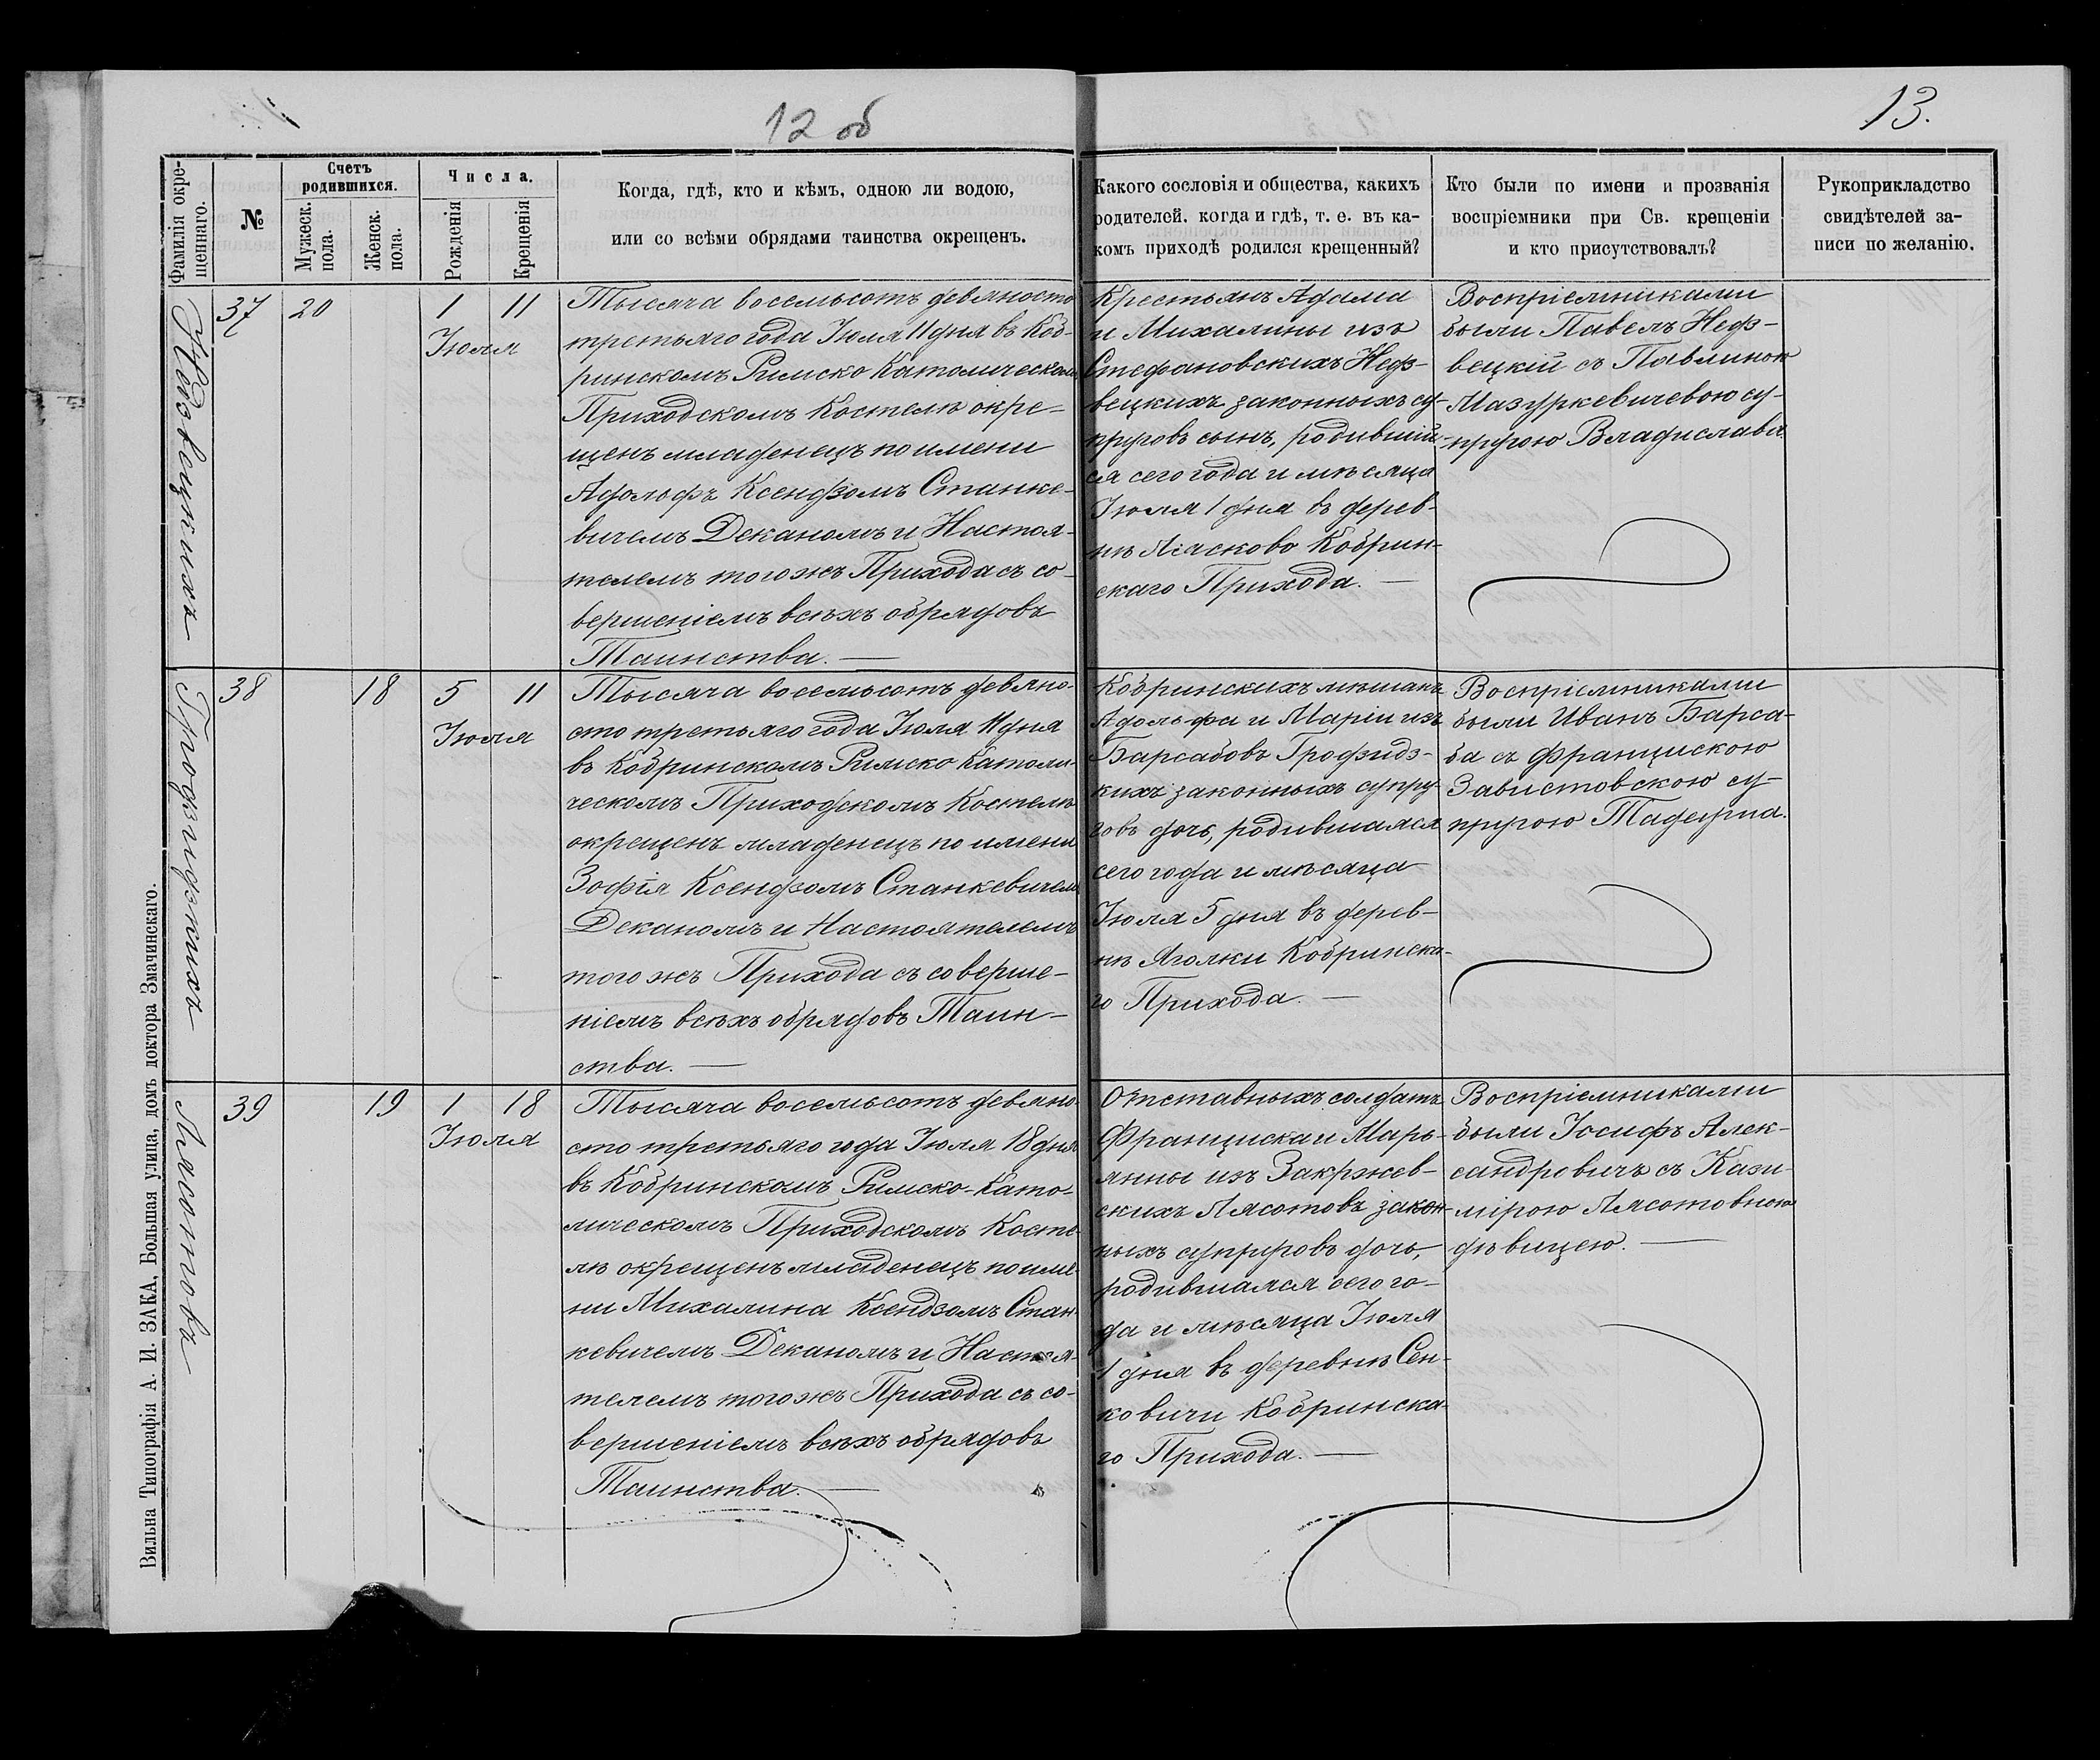 12 об
13.
Фамилія окре-
щеннаго.
№
Счетъ
родившихся.
Мужеск.
пола.
Женск.
пола.
Числа.
Рожденія
Крещенія
Когда, гдѣ, кто и кѣмъ, одною ли водою,
или со всѣми обрядами таинства окрещенъ.
Какого сословія и общества, какихъ
родителей, когда и гдѣ, т. е. въ ка-
комъ приходѣ родился крещенный?
Кто были по имени и прозванія
воспріемники при Св. крещеніи
и кто присутствовалъ?
Рукоприкладство
свидѣтелей за-
писи по желанію.
Недзвецкихъ
37
20
1 11
Іюля
Тысяча восемьсотъ девяносто
третьяго года Іюля 11 дня въ Коб-
ринскомъ Римско Католическомъ
Приходскомъ Костелѣ окре-
щенъ младенецъ по имени
Адольфъ Ксендзомъ Станке-
вичемъ Деканомъ и Настоя-
телемъ того жъ Прихода съ со-
вершеніемъ всѣхъ обрядовъ
Таинства. —
Крестьянъ Адама
и Михалины изъ
Стефановскихъ Недз-
вецкихъ законныхъ су-
пруговъ сынъ, родившій-
ся сего года и мѣсяца
Іюля 1 дня въ дерев-
нѣ Лясково Кобрин-
скаго Прихода. —
Воспріемниками
были Павелъ Недз-
вецкій съ Павлиною
Мазуркевичевою су-
пругою Владислава.
Гродзидзкихъ
38
18
5 11
Іюля
Тысяча восемьсотъ девяно-
сто третьяго года Іюля 11 дня
въ Кобринскомъ Римско Католи-
ческомъ Приходскомъ Костелѣ
окрещенъ младенецъ по имени
Зофія Ксендзомъ Станкевичемъ
Деканомъ и Настоятелемъ
того жъ Прихода съ соверше-
ніемъ всѣхъ обрядовъ Таин-
ства. —
Кобринскихъ мѣщанъ
Адольфа и Маріи изъ
Барсабовъ Гродзидз-
кихъ законныхъ супру-
говъ дочь, родившаяся
сего года и мѣсяца
Іюля 5 дня въ дерев-
нѣ Яголки Кобринска-
го Прихода. —
Воспріемниками
были Иванъ Барса-
ба съ Францискою
Завистовскою су-
пругою Тадеуша.
Лясотовъ
39
19
1 18
Іюля
Тысяча восемьсотъ девяно-
сто третьяго года Іюля 18 дня
въ Кобринскомъ Римско-Като-
лическомъ Приходскомъ Косте-
лѣ окрещенъ младенецъ по име-
ни Михалина Ксендзомъ Стан-
кевичемъ Деканомъ и Настоя-
телемъ того жъ Прихода съ со-
вершеніемъ всѣхъ обрядовъ
Таинства. —
Отставныхъ солдатъ
Франциска и Марь-
янны изъ Закржев-
скихъ Лясотовъ закон-
ныхъ супруговъ дочь,
родившаяся сего го-
да и мѣсяца Іюля
1 дня въ деревнѣ Сен-
ковичи Кобринска-
го Прихода. —
Воспріемниками
были Іосифъ Алек-
сандровичъ съ Кази-
мірою Лясотовною
дѣвицею. —
Вильна Типографія А. И. ЗАКА, Большая улица, домъ доктора Змачинскаго.